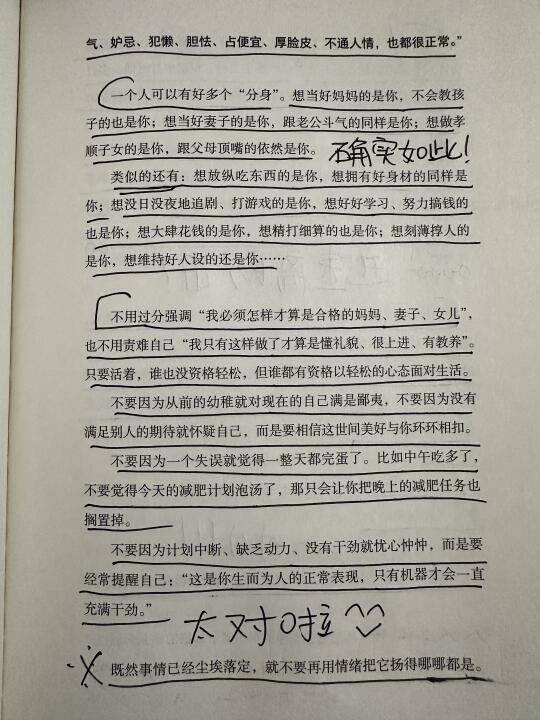 气、妒忌、犯懒、胆怯、占便宜、厚脸皮、不通人情，也都很正常。”
一个人可以有好多个“分身”。想当好妈妈的是你，不会教孩
子的也是你；想当好妻子的是你，跟老公斗气的同样是你；想做孝
顺子女的是你，跟父母顶嘴的依然是你。
确实如此！
类似的还有：想放纵吃东西的是你，想拥有好身材的同样是
你；想没日没夜地追剧、打游戏的是你，想好好学习、努力搞钱的
也是你；想大肆花钱的是你，想精打细算的也是你；想刻薄撑人的
是你，想维持好人设的还是你……
不用过分强调“我必须怎样才算是合格的妈妈、妻子、女儿”，
也不用责难自己“我只有这样做了才算是懂礼貌、很上进、有教养”。
只要活着，谁也没资格轻松，但谁都有资格以轻松的心态面对生活。
不要因为从前的幼稚就对现在的自己满是鄙夷，不要因为没有
满足别人的期待就怀疑自己，而是要相信这世间美好与你环环相扣。
不要因为一个失误就觉得一整天都完蛋了。比如中午吃多了，
不要觉得今天的减肥计划泡汤了，那只会让你把晚上的减肥任务也
搁置掉。
不要因为计划中断、缺乏动力、没有干劲就忧心忡忡，而是要
经常提醒自己：“这是你生而为人的正常表现，只有机器才会一直
充满干劲。”
太对啦
既然事情已经尘埃落定，就不要再用情绪把它扬得哪哪都是。